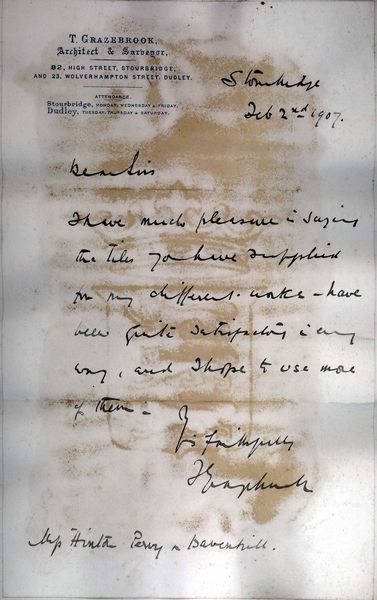 T. GRAZEBROOK,
Architect & Surveyor,
82, HIGH STREET, STOURBRIDGE,
AND 23, WOLVERHAMPTON STREET, DUDLEY.
ATTENDANCE.
Stourbridge, MONDAY, WEDNESDAY & FRIDAY.
Dudley, TUESDAY, THURSDAY & SATURDAY.
Stourbridge
Feb 2nd 1907.
Dear Sirs
I have much pleasure in saying
the tiles you have supplied
for my different works - have
been quite satisfactory in every
way, and I hope to use more
of them -
Yrs faithfully
T Grazebrook
Hinton Perry & Davenhill.